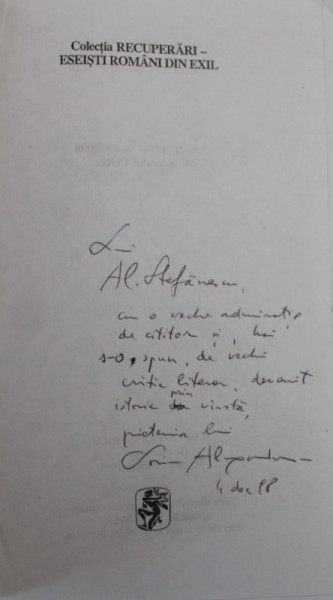 Colecția RECUPERĂRI –
ESEIȘTI ROMÂNI DIN EXIL
Lui
Al. Ștefănescu,
cu o veche admirație
de cititor și, hai
s-o spun, de vechi
critic literar, devenit
istoric prin vârstă,
prietenia lui
Sorin Alexandrescu
4 dec 98